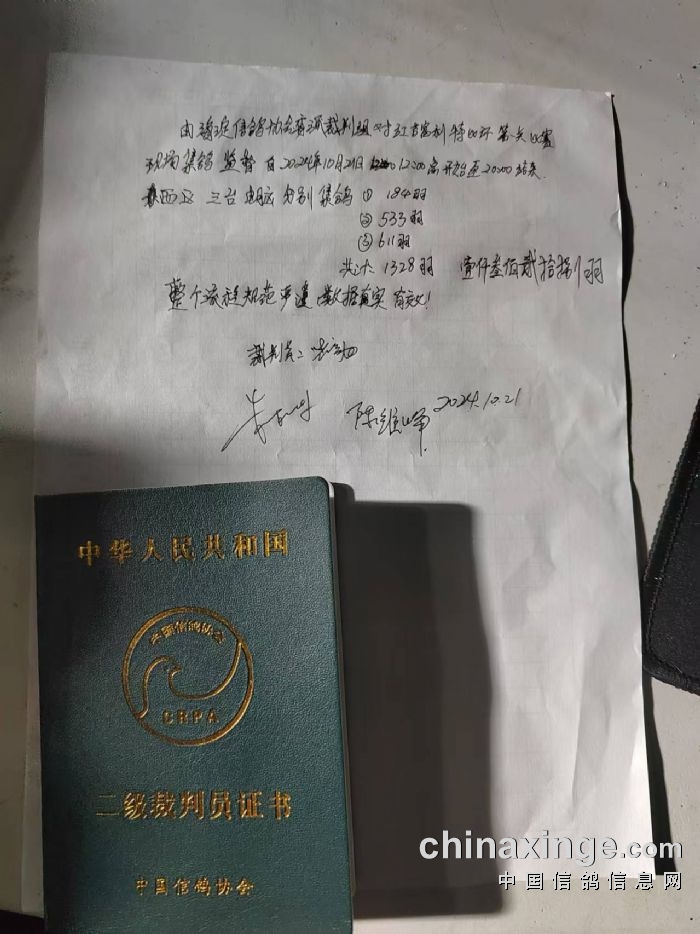 由海淀信鸽协会资深裁判组对红吉宝利特比环第一关比赛
现场集鸽监督自2024年10月21日12:00高开始至20:00结束.
西区三台电脑分别集鸽① 184羽
② 533羽
③ 611羽
共计: 1328羽 壹仟叁佰贰拾捌羽
整个流程规范严谨数据真实有效!
裁判员:
陈维峰 2024.10.21
中华人民共和国
中国信鸽协会
CRPA
二级裁判员证书
中国信鸽协会
chinaxinge.com
中国信鸽信息网